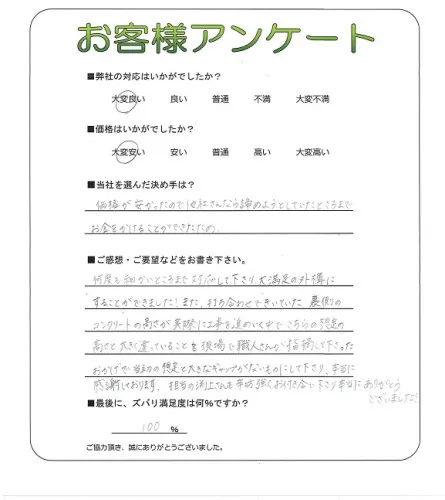 お客様アンケート
■弊社の対応はいかがでしたか？
大変良い 良い 普通 不満 大変不満
■価格はいかがでしたか？
大変安い 安い 普通 高い 大変高い
■当社を選んだ決め手は？
価格が安かったので他社さんなら諦めようとしていたところまで
お金をかけることができたため.
■ご感想・ご要望などをお書き下さい。
何度も細かいところまで対応して下さり、大満足の外構に
することができました！また、打ち合わせできいていた 裏側の
コンクリートの高さが実際に工事を進めていく中でこちらの想定の
高さと大きく違っていることを現場で職人さんが指摘して下さった
おかげで当初の想定と大きなギャップがないものにして下さり、本当に
感謝しております、担当の 強くお付き合い下さり本当にありがとう
ございました！
■最後に、ズバリ満足度は何%ですか？
100 %
ご協力頂き、誠にありがとうございました。